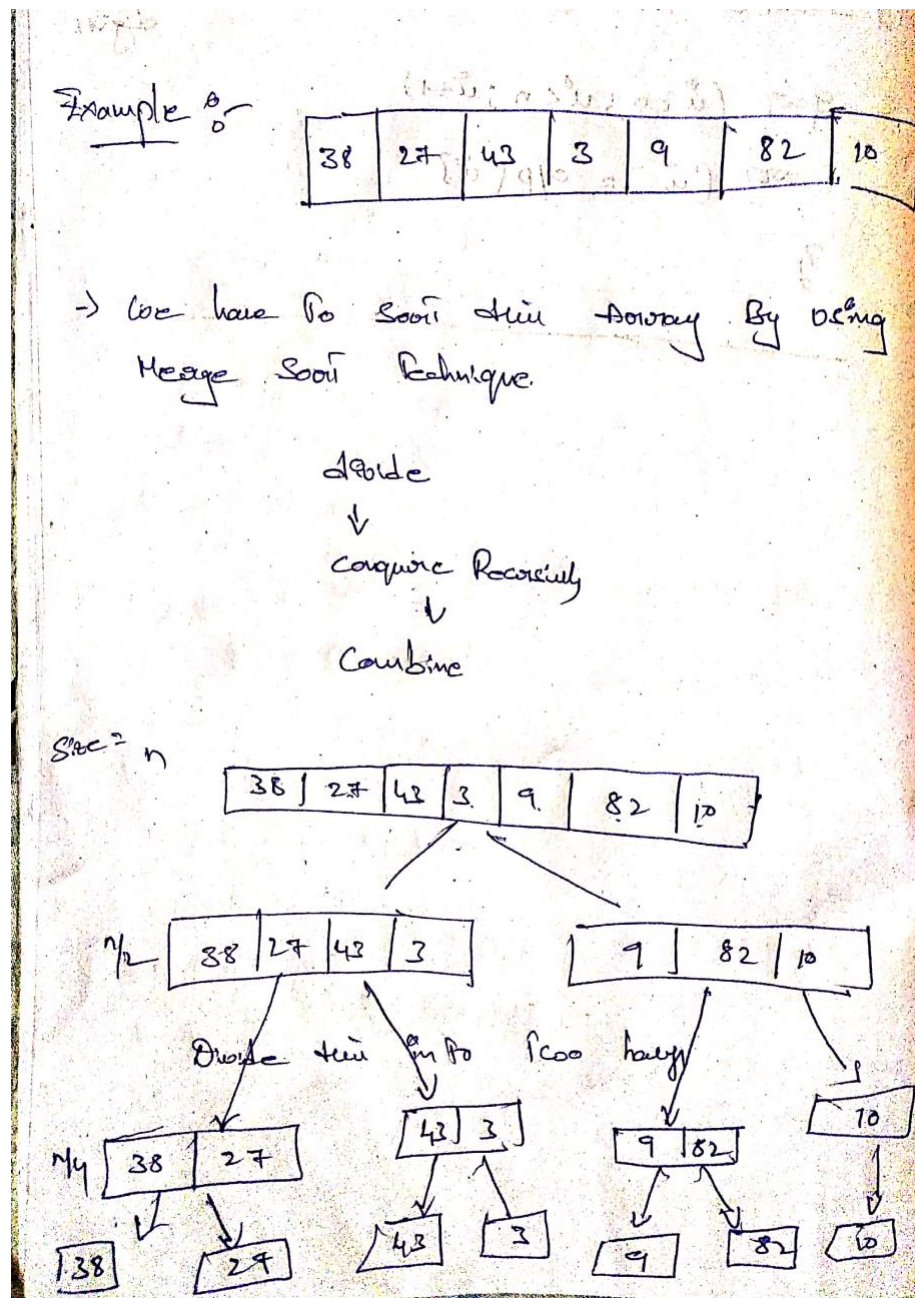 Example :-
38 27 43 3 9 82 10
-> we have To Sort this Array By using
Merge Sort Technique.
divide
↓
conquire Recursively
↓
Combine
Size = n
38 27 43 3 9 82 10
n/2 38 27 43 3 9 82 10
Divide this in to Two halfs
n/4 38 27 43 3 9 82 10
38 27 43 3 9 82 10